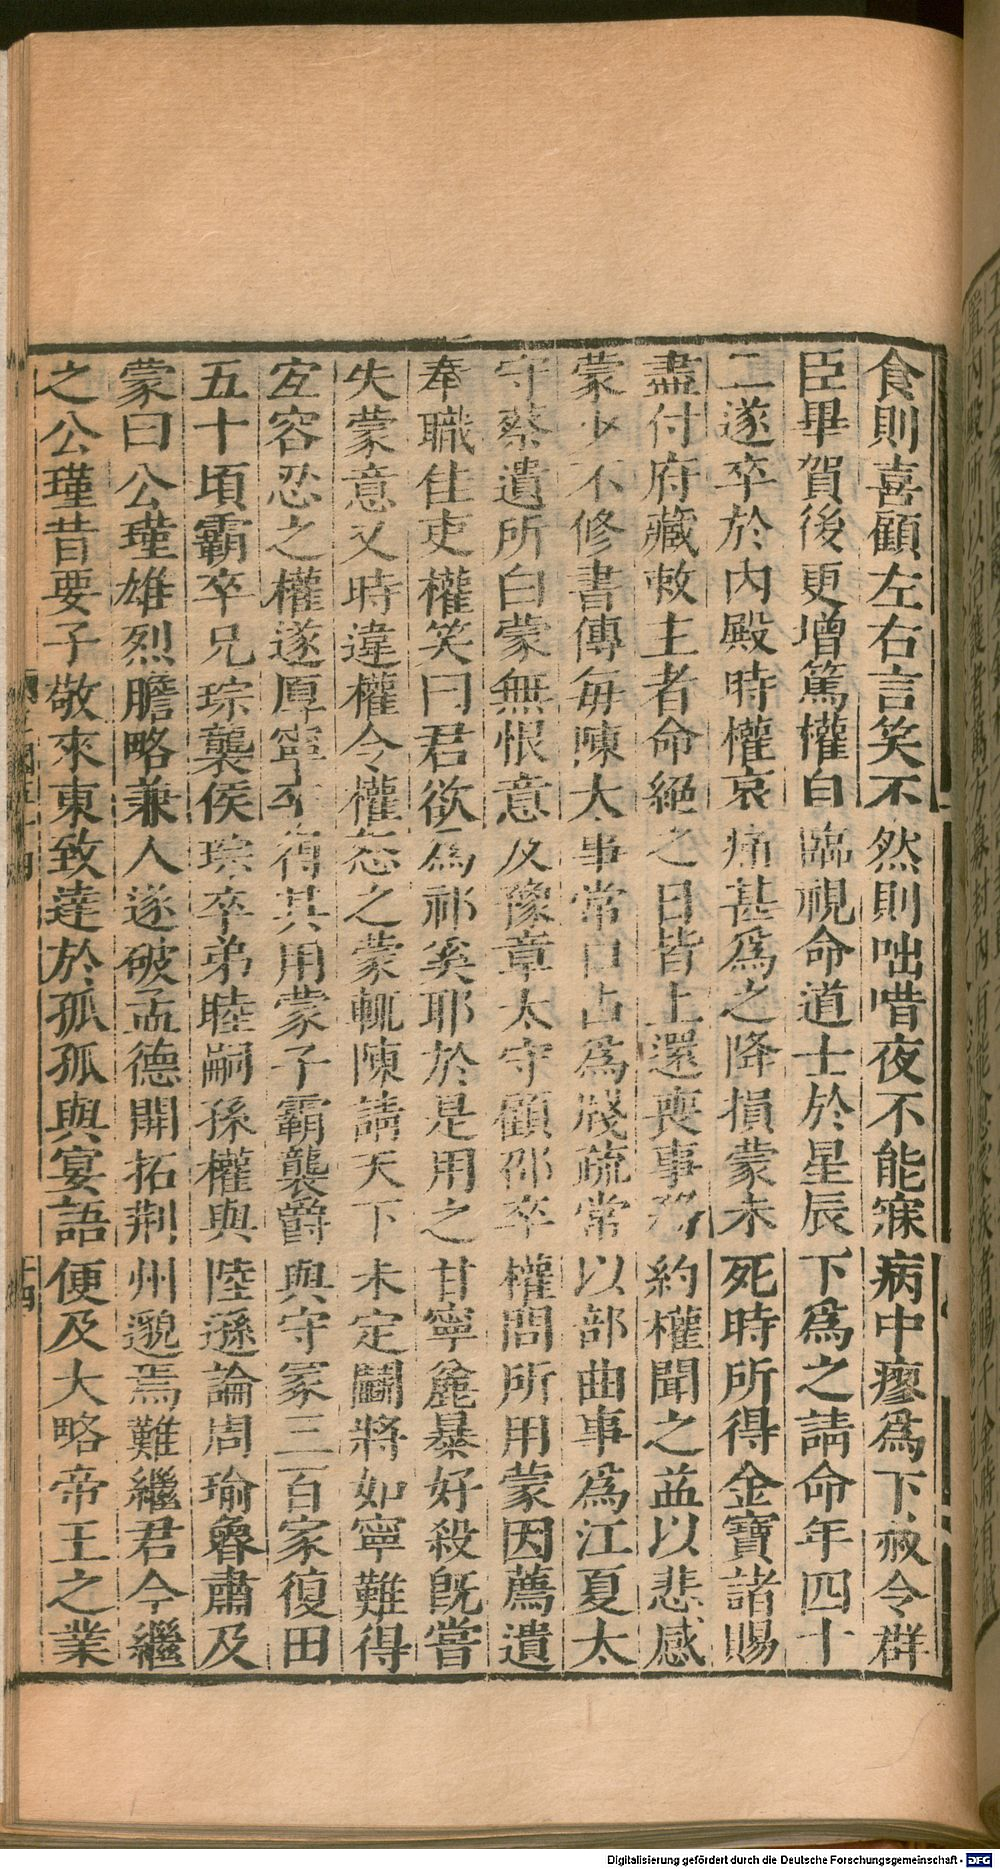 食則喜顧左右言笑不然則咄唶夜不能寐病中瘳爲下赦令群
臣畢賀後更增篤權自臨視命道士於星辰下爲之請命年四十
二遂卒於內殿時權哀痛甚爲之降損蒙未死時所得金寶諸賜
盡付府藏敕主者命絕之日皆上還喪事務約權聞之益以悲感
蒙少不修書傳每陳大事常口占爲牋疏常以部曲事爲江夏太
守蔡遺所白蒙無恨意及豫章太守顧邵卒權問所用蒙因薦遺
奉職佳吏權笑曰君欲爲祁奚耶於是用之甘寧麄暴好殺旣嘗
失蒙意又時違權令權怒之蒙輒陳請天下未定鬭將如寧難得
宜容忍之權遂厚寧卒得其用蒙子霸襲爵與守冢三百家復田
五十頃霸卒兄琮襲侯琮卒弟睦嗣孫權與陸遜論周瑜魯肅及
蒙曰公瑾雄烈膽略兼人遂破孟德開拓荆州邈焉難繼君今繼
之公瑾昔要子敬來東致達於孤孤與宴語便及大略帝王之業
Digitalisierung gefördert durch die Deutsche Forschungsgemeinschaft - DFG